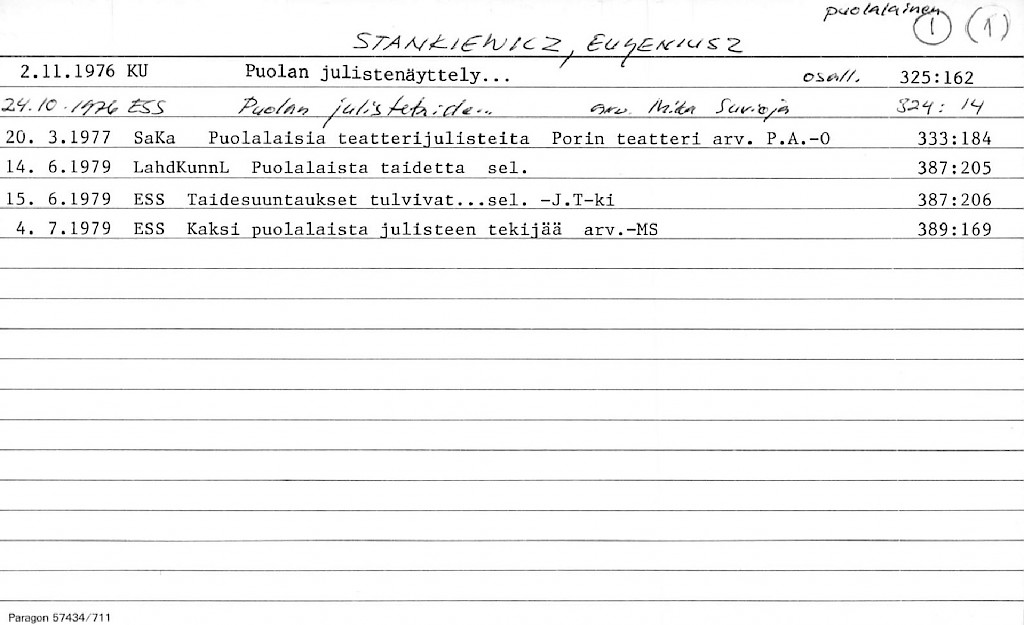 puolalainen
1 (1)
STANKIEWICZ, EUGENIUSZ
2.11.1976 KU Puolan julistenäyttely... osall. 325:162
24.10.1976 ESS Puolan julistetaide... arv. Mika Suvioja 324: 14
20. 3.1977 SaKa Puolalaisia teatterijulisteita Porin teatteri arv. P.A.-O 333:184
14. 6.1979 LahdKunnL Puolalaista taidetta sel. 387:205
15. 6.1979 ESS Taidesuuntaukset tulvivat...sel. -J.T-ki 387:206
4. 7.1979 ESS Kaksi puolalaista julisteen tekijää arv.-MS 389:169
Paragon 57434/711